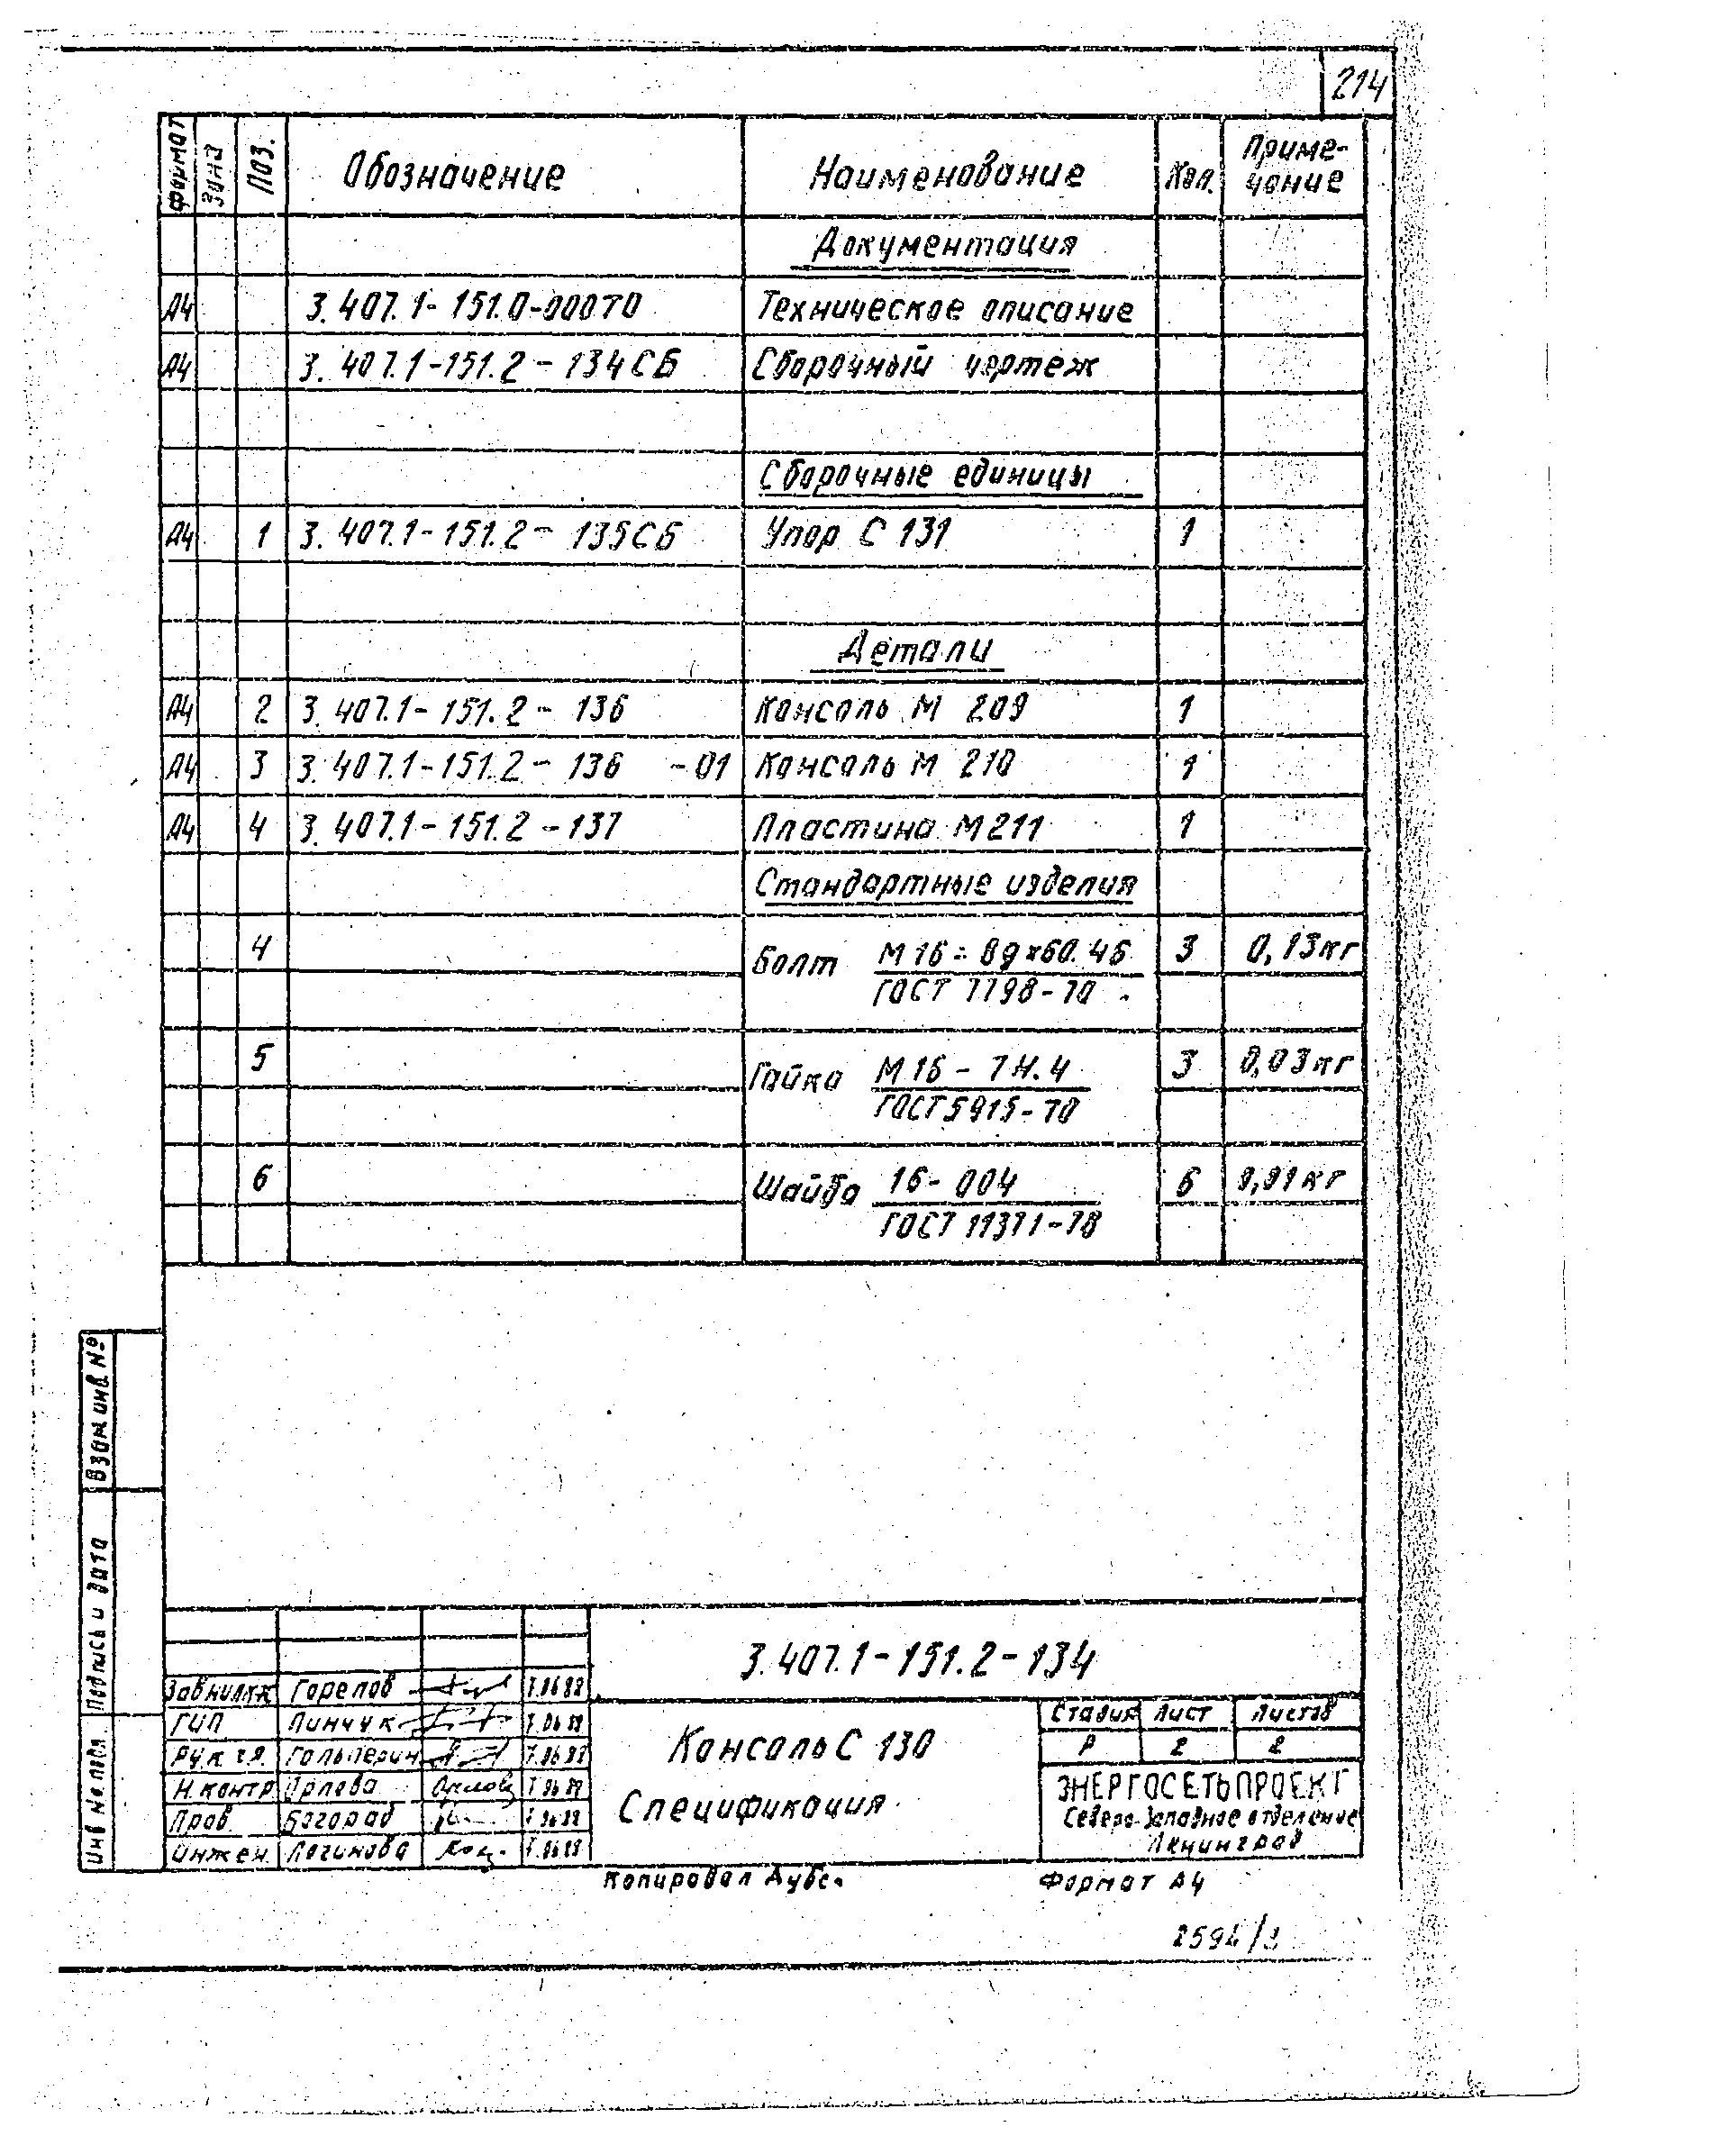 214
Формат Зона Поз. Обозначение Наименование Кол. Приме-
чание
Документация
А4 3.407.1-151.0-000ТО Техническое описание
А4 3.407.1-151.2-134СБ Сборочный чертеж
Сборочные единицы
А4 1 3.407.1-151.2-135СБ Упор С 131 1
Детали
А4 2 3.407.1-151.2-136 Консоль М 209 1
А4 3 3.407.1-151.2-136 -01 Консоль М 210 1
А4 4 3.407.1-151.2-137 Пластина М211 1
Стандартные изделия
4 Болт М16-8gх60.46 3 0,13кг
ГОСТ 7798-70
5 Гайка М16-7Н.4 3 0,03кг
ГОСТ 5915-70
6 Шайба 16-004 6 0,01кг
ГОСТ 11371-78
Взам инв №
Подпись и дата
Инв № подл.
3.407.1-151.2-134
Завнилкк Горелов
ГИП Пинчук
Рук гр. Гольперин
Н.контр Орлова
Пров. Богорад
Инжен. Логинова
Консоль С 130
Спецификация
Стадия Лист Листов
Р 2 2
ЭНЕРГОСЕТЬПРОЕКТ
Северо-Западное отделение
Ленинград
Копировал Формат А4
2594/3